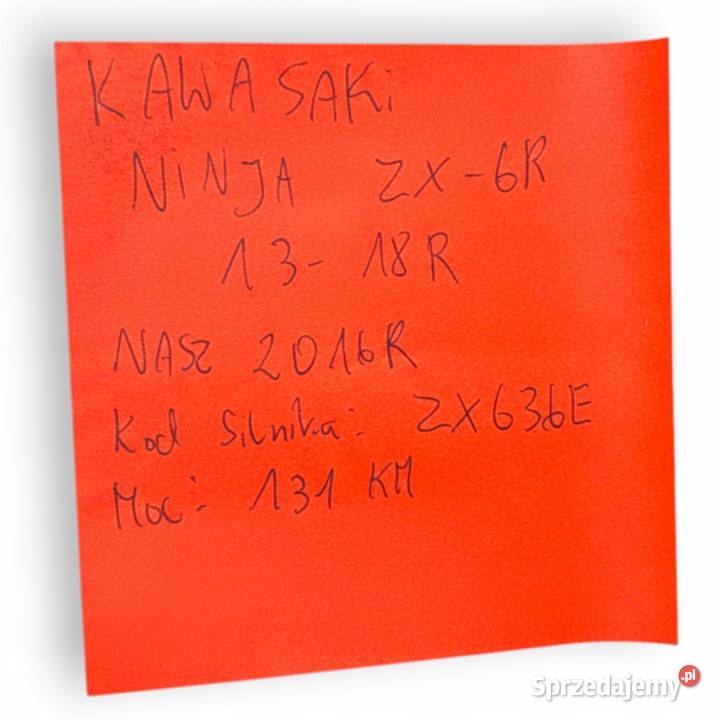 KAWASAKi
NiNJA ZX-6R
13- 18R
NASZ 2016R
Kod Silnika: ZX636E
Moc: 131 KM
Sprzedajemy.pl